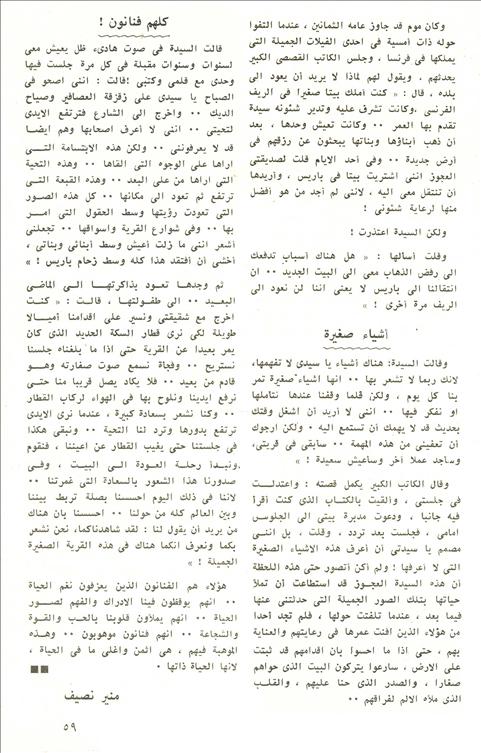 وكان موم قد جاوز عامه الثمانين ، عندما التفوا
حوله ذات أمسية في احدى الفيلات الجميلة التي
يملكها في فرنسا ، وجلس الكاتب القصصي الكبير
يحدثهم . ويقول لهم لماذا لا يريد أن يعود الى
بلده ، قال : « كنت أملك بيتا صغيرا في الريف
الفرنسي .وكانت تشرف عليه وتدير شئونه سيدة
تقدم بها العمر ٠٠ وكانت تعيش وحدها ، بعد
أن ذهب أبناؤها وبناتها يبحثون عن رزقهم في
أرض جديدة ٠٠ وفي أحد الايام قلت لصديقتي
العجوز انني اشتريت بيتا في باريس ، وأريدها
أن تنتقل معي اليه ، لانني لم أجد من هو أفضل
منها لرعاية شئوني !
ولكن السيدة اعتذرت !
وقلت أسألها : « هل هناك أسباب تدفعك
الى رفض الذهاب معي الى البيت الجديد ٠٠ ان
انتقالنا الى باريس لا يعني اننا لن نعود الى
الريف مرة أخرى ! »
أشياء صغيرة
وقالت السيدة: هناك أشياء يا سيدى لا تفهمها،
لانك ربما لا تشعر بها ٠٠ انها اشياء صغيرة تمر
بنا كل يوم ، ولكن قلما وقفنا عندها نتأملها
او نفكر فيها ٠٠ انني لا أريد أن اشغل وقتك
بحديث قد لا يهمك أن تستمع اليه ٠ ولكن ارجوك
أن تعفيني من هذه المهمة ٠٠ سأبقى في قريتي،
وساجد عملا آخر وساعيش سعيدة ! »
وقال الكاتب الكبير يكمل قصته : واعتدلت
في جلستي ، وألقيت بالكتاب الذى كنت أقرأ
فيه جانبا ، ودعوت مدبرة بيتي الى الجلوس
امامي ، فجلست بعد تردد ، وقلت ، بل انني
مصمم يا سيدتي أن أعرف هذه الاشياء الصغيرة
التي لا أعرفها ! ولم أكن أتصور حتى هذه اللحظة
أن هذه السيدة العجوز قد استطاعت أن تملأ
حياتها بتلك الصور الجميلة التي حدثتني عنها
فيما بعد ، عندما تلفتت حولها ، فلم تجد أحدا
من هؤلاء الذين أفنت عمرها في رعايتهم والعناية
بهم ، حتى اذا ما احسوا بان اقدامهم قد ثبتت
على الارض ، سارعوا يتركون البيت الذى حواهم
صغارا ، والصدر الذى حنا عليهم ، والقلب
الذى ملأه الالم لفراقهم ٠٠
كلهم فنانون !
قالت السيدة في صوت هادىء ظل يعيش معي
لسنوات وسنوات مقبلة في كل مرة جلست فيها
وحدى مع قلمي وكتبي !قالت : انني اصحو في
الصباح يا سيدى على زقزقة العصافير وصياح
الديك ٠٠ واخرج الى الشارع فترتفع الايدى
لتحيتي ٠٠ انني لا أعرف اصحابها وهم ايضا
قد لا يعرفونني ٠٠ ولكن هذه الابتسامة التي
اراها على الوجوه التي القاها ٠٠ وهذه التحية
التي اراها من على البعد ٠٠ وهذه القبعة التي
ترتفع ثم تعود الى مكانها ٠٠ كل هذه الصور
التي تعودت رؤيتها وسط الحقول التي امر
بها ٠٠ وفي شوارع القرية واسواقها ٠٠ تجعلني
أشعر انني ما زلت أعيش وسط أبنائي وبناتي ،
أخشى أن أفتقد هذا كله وسط زحام باريس ! »
ثم وجدها تعود بذاكرتها الى الماضي
البعيد ٠٠ الى طفولتها ، قالت : « كنت
اخرج مع شقيقتي ونسير على اقدامنا أميالا
طويلة لكي نرى قطار السكة الحديد الذى كان
يمر بعيدا عن القرية حتى اذا ما بلغناه جلسنا
نستريح ٠٠ وفجأة نسمع صوت صفارته وهو
قادم من بعيد ٠٠ فلا يكاد يصل قريبا منا حتى
نرفع ايدينا ونلوح بها في الهواء لركاب القطار
٠٠ وكنا نشعر بسعادة كبيرة ، عندما نرى الايدى
ترتفع بدورها وترد لنا التحية ٠٠ ونبقى هكذا
في جلستنا حتى يغيب القطار عن اعيننا ، فنقوم
ونبدأ رحلة العودة الى البيت ، وفي
صدورنا هذا الشعور بالسعادة التي غمرتنا ٠٠
لاننا في ذلك اليوم احسسنا بصلة تربط بيننا
وبين العالم كله من حولنا ٠٠ احسسنا بان هناك
من يريد أن يقول لنا : لقد شاهدناكما، نحن نشعر
بكما ونعرف انكما هناك في هذه القرية الصغيرة
الجميلة ! »
هؤلاء هم الفنانون الذين يعزفون نغم الحياة
٠٠ انهم يوقظون فينا الادراك والفهم لصور
الحياة ٠٠ انهم يملأون قلوبنا بالحب والقوة
والشجاعة ٠٠ انهم فنانون موهوبون ٠٠ وهذه
الموهبة فيهم ، هي اثمن واغلى ما في الحياة ،
لانها الحياة ذاتها ٠
منير نصيف
٥٩